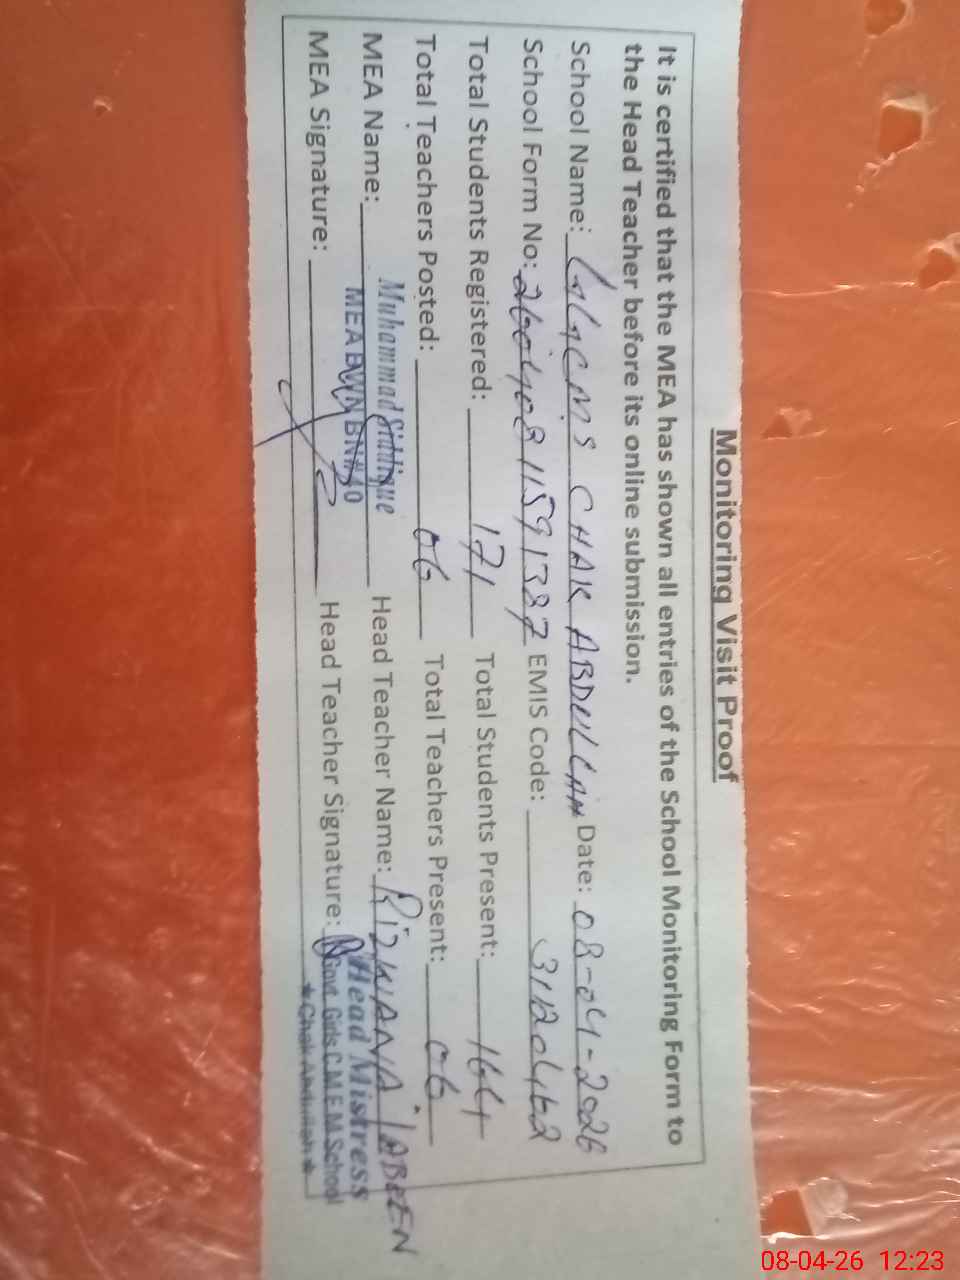 Monitoring Visit Proof
It is certified that the MEA has shown all entries of the School Monitoring Form to
the Head Teacher before its online submission.
School Name: CHAK ABDULLAH Date: 08-04-2026
School Form No: EMIS Code: 31120462
Total Students Registered: 171 Total Students Present: 164
Total Teachers Posted: 06 Total Teachers Present: 06
MEA Name: Muhammad Siddique Head Teacher Name: RIZWANA JABEEN
MEA BWN BN#40
MEA Signature: Head Teacher Signature:
Head Mistress
Govt. Girls C.M.E.M School
Chak Abdullah
08-04-26 12:23